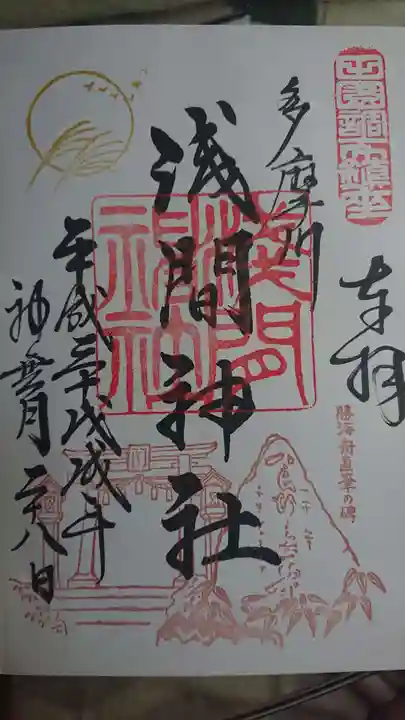 奉拝
多摩川
浅間神社
平成三十戊戌年
神無月二十八日
浅間神社
勝海舟直筆の碑